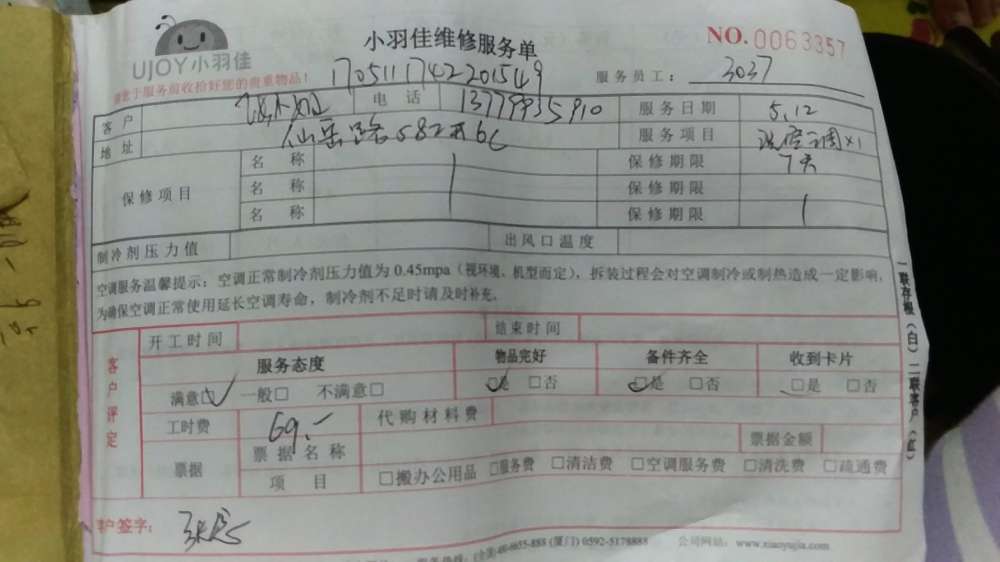 UJOY小羽佳
小羽佳维修服务单
NO.0063357
请于服务前收拾好您的贵重物品!
1705111742201549
服务员工: 3037
客户
电话 13779935910
服务日期 5.12
地址 仙岳路582#6C
服务项目 洗空调×1
保修项目
名称 保修期限 7天
名称 保修期限
名称 保修期限
制冷剂压力值 出风口温度
空调服务温馨提示:空调正常制冷剂压力值为0.45mpa(视环境、机型而定),拆装过程会对空调制冷或制热造成一定影响,
为确保空调正常使用延长空调寿命,制冷剂不足时请及时补充。
开工时间 结束时间
客户评定
服务态度 物品完好 备件齐全 收到卡片
满意□ 一般□ 不满意□ □是 □否 □是 □否 □是 □否
工时费 69.- 代购材料费
票据 票据名称 票据金额
项目 □搬办公用品 □服务费 □清洁费 □空调服务费 □清洗费 □疏通费
客户签字:
0592-5178888 公司网站:www.xiaoyujia.com
一联存根(白) 二联客户(红)